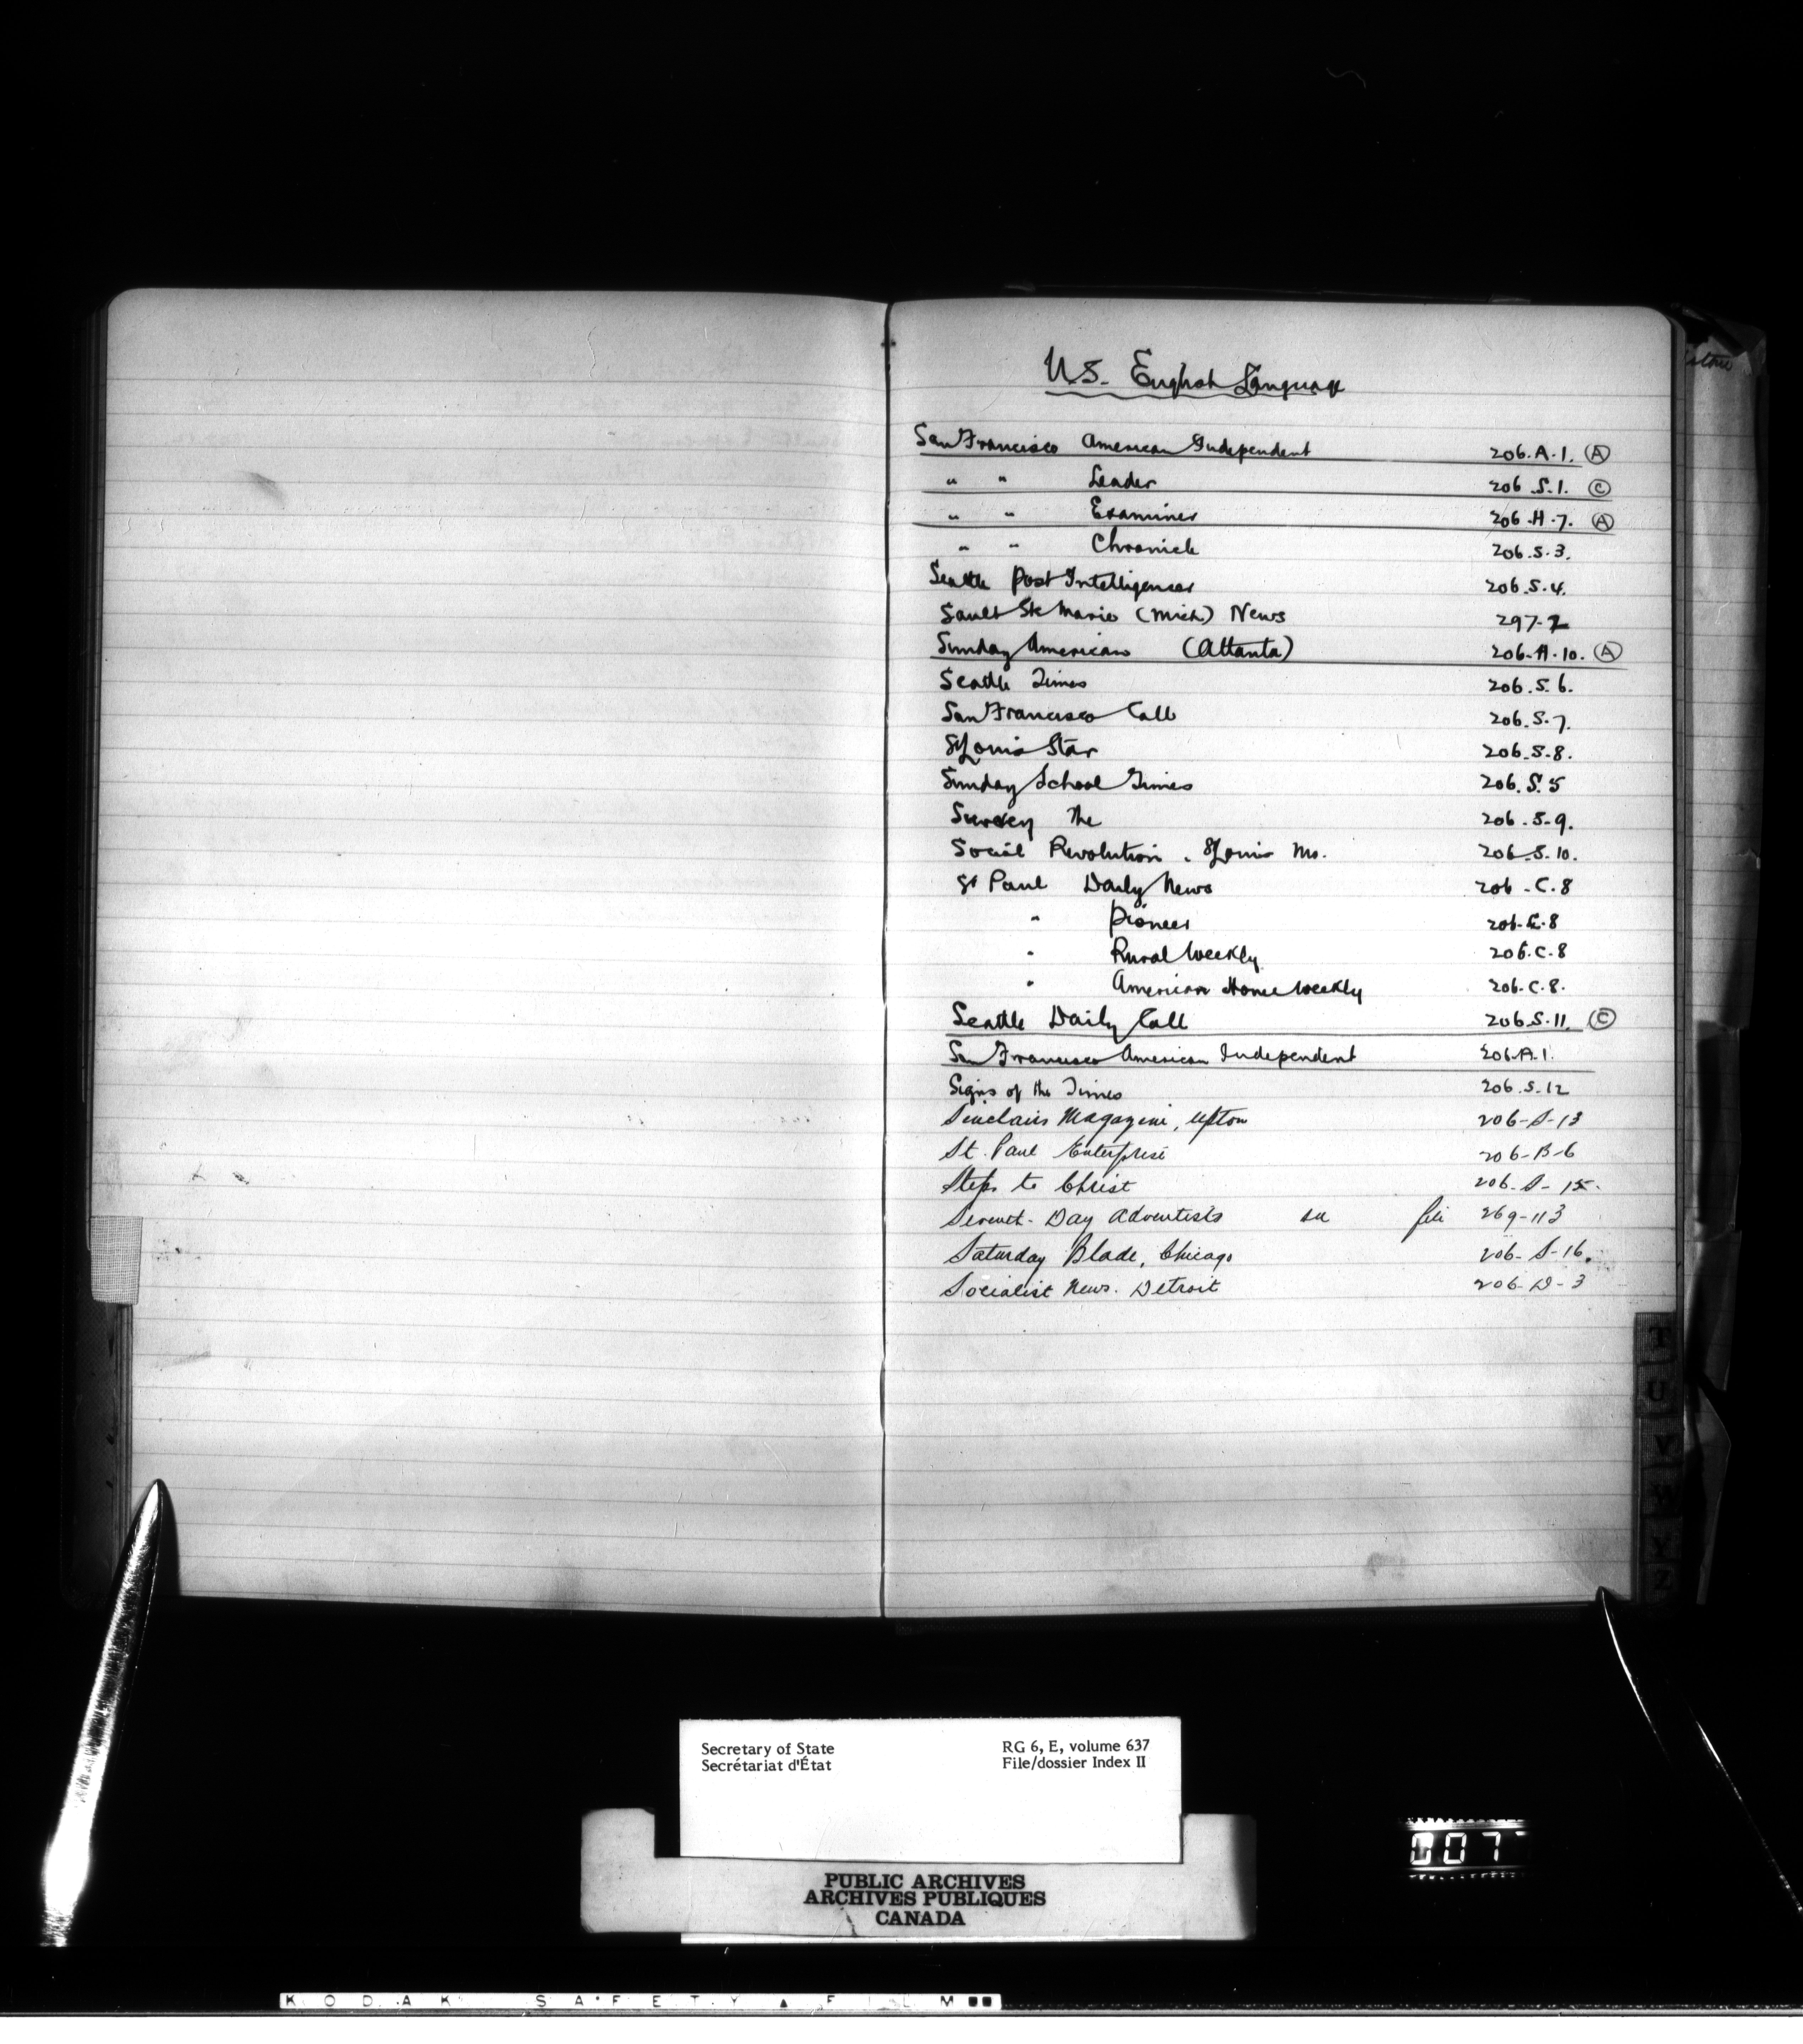 U.S. English Language
San Francisco American Independent 206.A.1. Ⓐ
" " Leader 206.S.1. Ⓒ
" " Examiner 206.H.7. Ⓐ
" " Chronicle 206.S.3.
Seattle Post Intelligencer 206.S.4.
Sault Ste Marie (Mich) News 297-2
Sunday American (Atlanta) 206.A.10. Ⓐ
Seattle Times 206.S.6.
San Francisco Call 206.S.7.
St Louis Star 206.S.8.
Sunday School Times 206.S.5
Survey The 206.S.9.
Social Revolution. St Louis Mo. 206.S.10.
St Paul Daily News 206.C.8
" Pioneer 206.C.8
" Rural Weekly 206.C.8
" American Home Weekly 206.C.8.
Seattle Daily Call 206.S.11. Ⓒ
San Francisco American Independent 206.A.1.
Signs of the Times 206.S.12
Sinclairs Magazine, Upton 206-S-13
St. Paul Enterprise 206-B-6
Steps to Christ 206-S-15.
Seventh-Day Adventists see file 269-113
Saturday Blade, Chicago 206-S-16.
Socialist News. Detroit 206-D-3
T
U
V
W
Y
Z
Secretary of State RG 6, E, volume 637
Secrétariat d'État File/dossier Index II
PUBLIC ARCHIVES
ARCHIVES PUBLIQUES
CANADA
007
KODAK SAFETY ▲ FILM